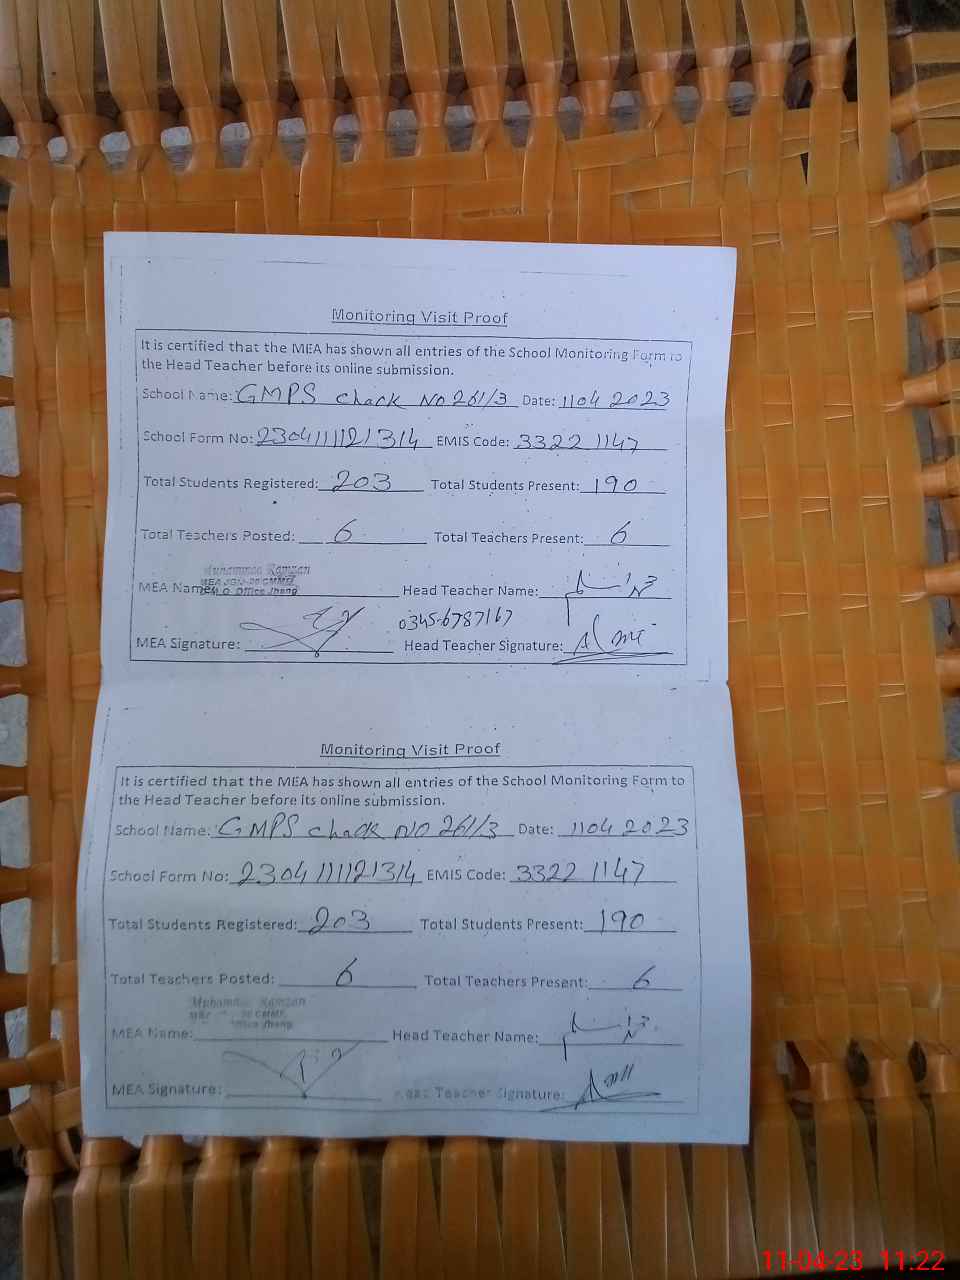 Monitoring Visit Proof
It is certified that the MEA has shown all entries of the School Monitoring Form to
the Head Teacher before its online submission.
School Name: GMPS chack No 261/3 Date: 1104 2023
School Form No: 2304111121314 EMIS Code: 3322 1147
Total Students Registered: 203 Total Students Present: 190
Total Teachers Posted: 6 Total Teachers Present: 6
Muhammad Ramzan
Office Jhang
MEA Name: Head Teacher Name:
0345-6787167
MEA Signature: Head Teacher Signature:
Monitoring Visit Proof
It is certified that the MEA has shown all entries of the School Monitoring Form to
the Head Teacher before its online submission.
School Name: GMPS chack NO 261/3 Date: 1104 2023
School Form No: 2304111121314 EMIS Code: 3322 1147
Total Students Registered: 203 Total Students Present: 190
Total Teachers Posted: 6 Total Teachers Present: 6
Muhammad Ramzan
Office Jhang
MEA Name: Head Teacher Name:
MEA Signature: Head Teacher Signature:
11-04-23 11:22